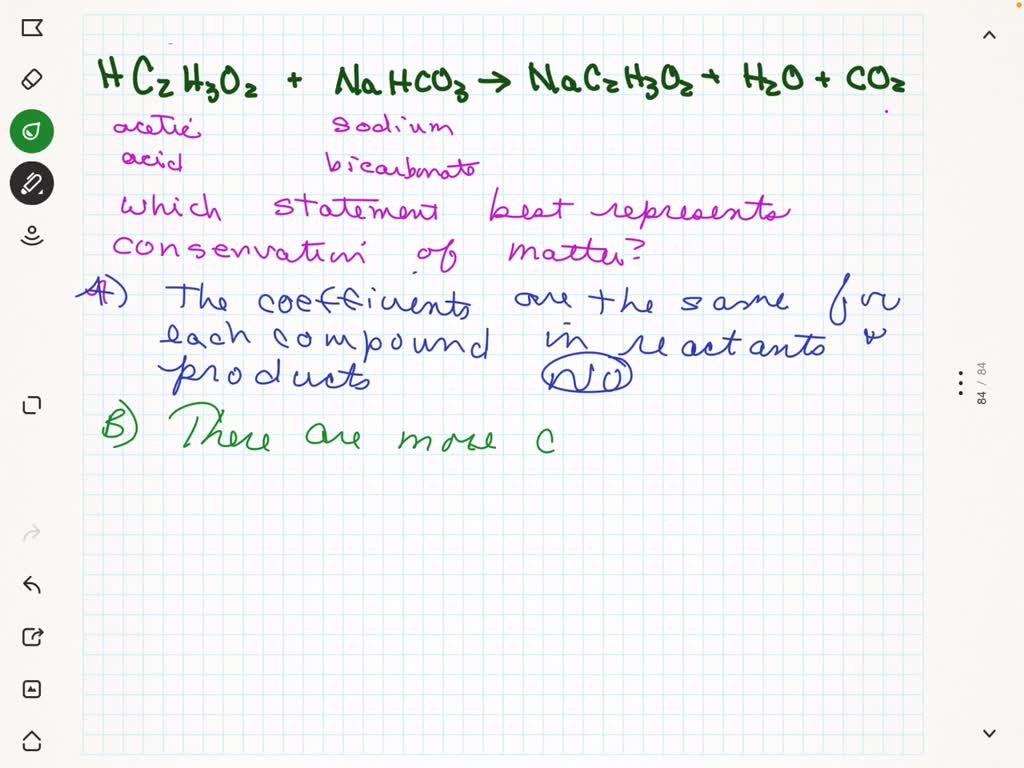 HC₂H₃O₂ + NaHCO₃ → NaC₂H₃O₂ + H₂O + CO₂
acetic sodium
acid bicarbonate
which statement best represents
conservation of matter?
A) The coefficients are the same for
each compound in reactants &
products NO
B) There are more c
84 / 84